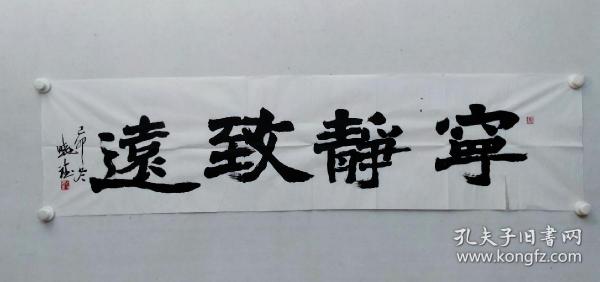 寧靜致遠
己卯冬
孔夫子旧書网
www.kongfz.com